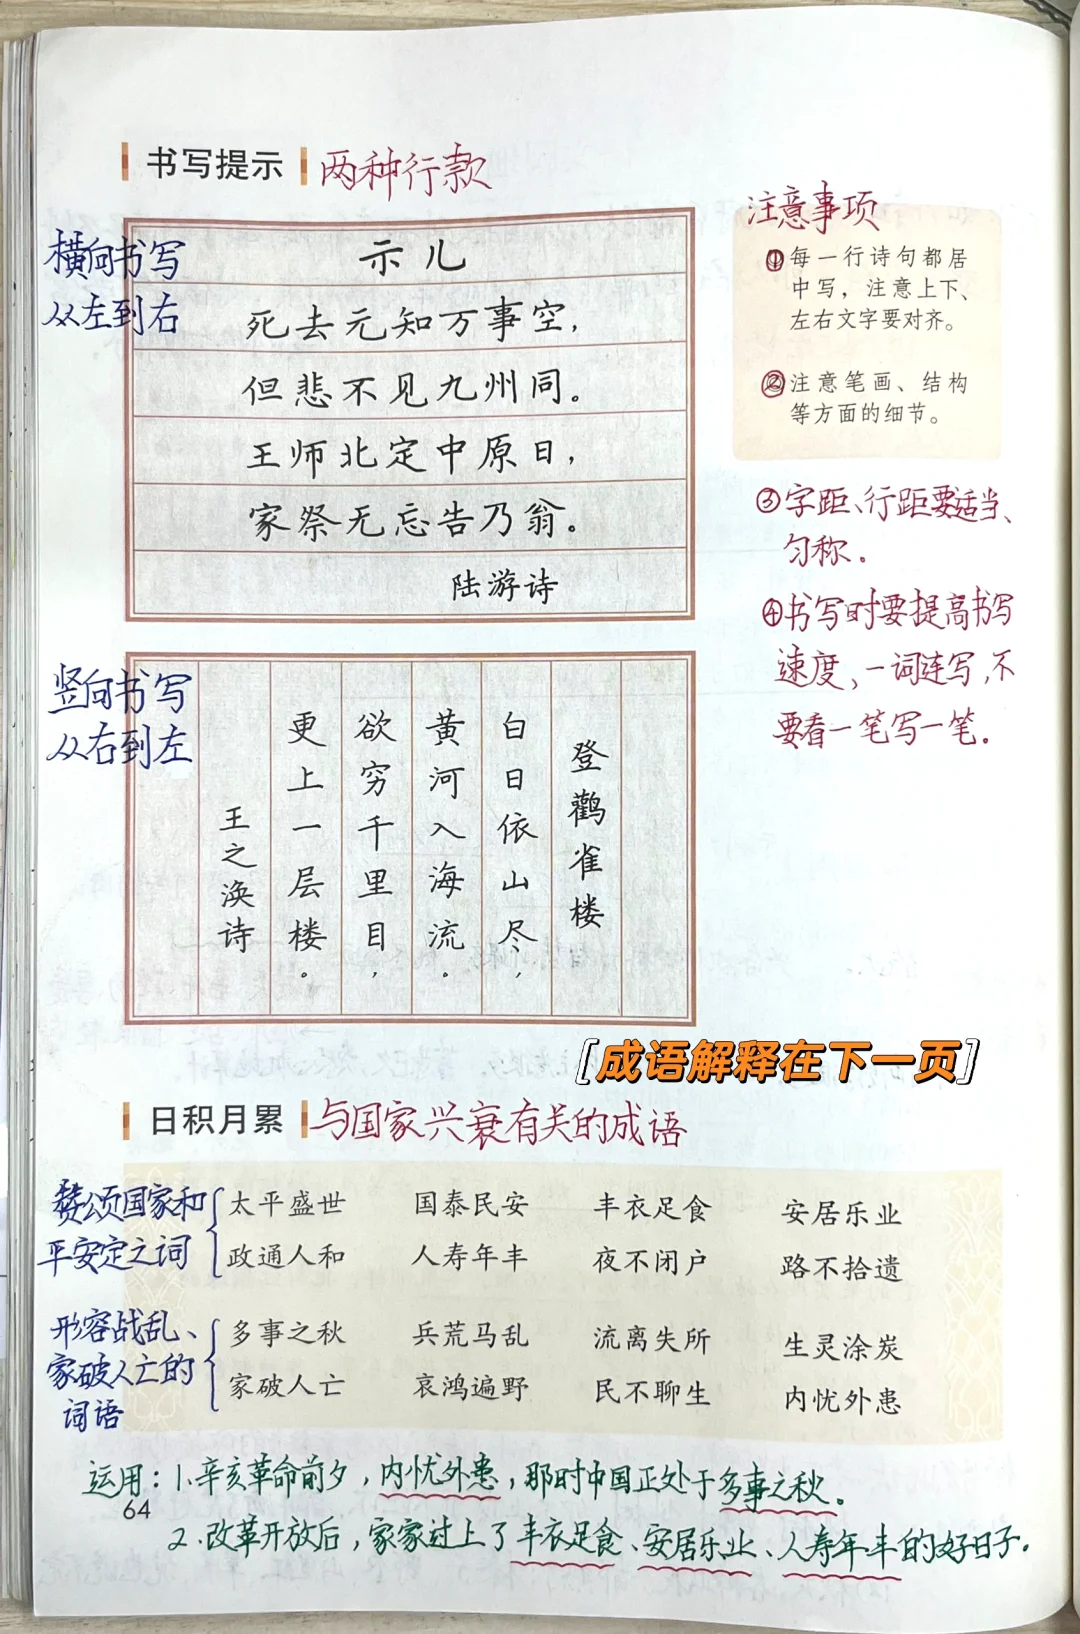 书写提示 两种行款
横向书写
从左到右
示儿
死去元知万事空，
但悲不见九州同。
王师北定中原日，
家祭无忘告乃翁。
陆游诗
注意事项
①每一行诗句都居
中写，注意上下、
左右文字要对齐。
②注意笔画、结构
等方面的细节。
③字距、行距要适当、
匀称。
④书写时要提高书写
速度，一词连写，不
要看一笔写一笔。
竖向书写
从右到左
登鹳雀楼
白日依山尽，
黄河入海流。
欲穷千里目，
更上一层楼。
王之涣诗
[成语解释在下一页]
日积月累 与国家兴衰有关的成语
赞颂国家和
平安定之词
太平盛世 国泰民安 丰衣足食 安居乐业
政通人和 人寿年丰 夜不闭户 路不拾遗
形容战乱、
家破人亡的
词语
多事之秋 兵荒马乱 流离失所 生灵涂炭
家破人亡 哀鸿遍野 民不聊生 内忧外患
运用：1.辛亥革命前夕，内忧外患，那时中国正处于多事之秋。
64
2.改革开放后，家家过上了丰衣足食、安居乐业、人寿年丰的好日子。